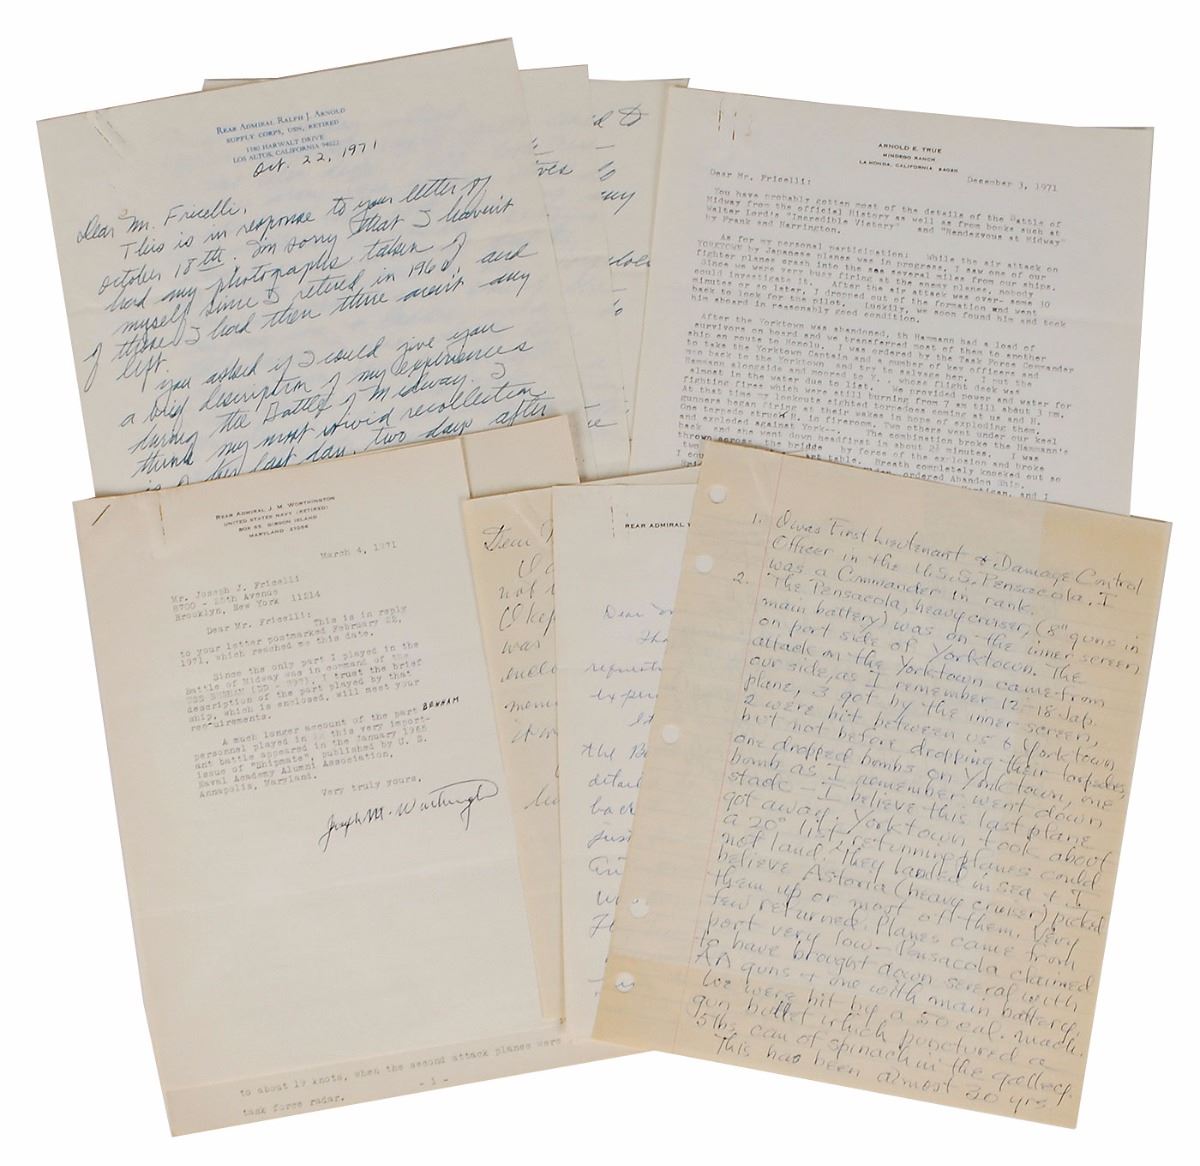 REAR ADMIRAL RALPH J. ARNOLD
SUPPLY CORPS, USN, RETIRED
1180 HARWALT DRIVE
LOS ALTOS, CALIFORNIA 94022
Oct. 22, 1971
Dear Mr. Fricelli,
This is in response to your letter of
October 18th. I'm sorry that I haven't
had any photographs taken of
myself since I retired in 1960, and
of those I had then there aren't any
left.
You asked if I could give you
a brief description of my experiences
during the Battle of Midway. I
think my most vivid recollection
is the last day, two days after
ARNOLD E. TRUE
MINDEGO RANCH
LA HONDA, CALIFORNIA 94020
December 3, 1971
Dear Mr. Fricelli:
You have probably gotten most of the details of the Battle of
Midway from the official History as well as from books such as
Walter Lord's "Incredible Victory" and "Rendezvous at Midway"
by Frank and Harrington.
As for my personal participation: While the air attack on
YORKTOWN by Japanese planes was in progress, I saw one of our
fighter planes crash into the sea several miles from our ships.
Since we were very busy firing at the enemy planes, nobody
could investigate it. After the air attack was over- some 10
minutes or so later, I dropped out of the formation and went
back to look for the pilot. Luckily, we soon found him and took
him aboard in reasonably good condition.
After the Yorktown was abandoned, th Hammann had a load of
survivors on board and we transferred most of them to another
ship en route to Honolu. I was ordered by the Task Force Commander
to take the Yorktown Captain and a number of key officers and
men back to the Yorktown and try to salvage her. I put the
Hammann alongside and moored to Y. , whose flight deck was
almost in the water due to list. provided power and water for
fighting fires which were still burning from 7 am till about 3 pm.
At that time my lookouts sighted torpedoes coming and H.
gunners began firing at their wakes in hopes of exploding them.
One torpedo struck H. in fireroom. Two others went under our keel
and exploded against York--. The combination broke the Hammann's
back and she went down headfirst in about 2½ minutes. I was
thrown across the bridge by force of the explosion and broke
two chart table. Breath completely knocked out so
I cou ordered Abandon Ship.
and I
REAR ADMIRAL J. M. WORTHINGTON
UNITED STATES NAVY (RETIRED)
BOX 55 GIBSON ISLAND
MARYLAND 21056
March 4, 1971
Mr. Joseph J. Fricelli
8700 - 25th Avenue
Brooklyn, New York 11214
Dear Mr. Fricelli:
This is in reply
to your letter postmarked February 25,
1971, which reached me this date.
Since the only part I played in the
Battle of Midway was in command of the
USS BENHAM (DD - 397), I trust the brief
description of the part played by that
ship, which is enclosed, will meet your
requirements.
A much longer account of the part BENHAM
personnel played in this very import-
ant battle appeared in the January 1965
issue of "Shipmate", published by U. S.
Naval Academy Alumni Association,
Annapolis, Maryland.
Very truly yours,
Joseph M. Worthington
to about 19 knots, when the second attack planes were
- 1 -
task force radar.
Dear
REAR ADMIRAL
Dear
the B
detail
back
just
1. I was First Lieutenant & Damage Control
Officer in the U.S.S. Pensacola. I
was a Commander in rank.
2. The Pensacola, heavy cruiser, (8" guns in
main battery) was on the inner screen
on port side of Yorktown. The
attack on the Yorktown came from
our side, as I remember 12-18 Jap.
plane, 3 got by the inner screen,
2 were hit between us & Yorktown
but not before dropping their torpedoes,
one dropped bombs on Yorktown, one
bomb as I remember went down
stack - I believe this last plane
got away. Yorktown took about
a 20° list, returning planes could
not land. They landed in sea & I
believe Astoria (heavy cruiser) picked
them up or most of them. Very
few returned. Planes came from
port very low - Pensacola claimed
to have brought down several with
AA guns & one with main battery.
We were hit by a 50 cal. mach.
gun bullet which punctured a
5 lbs. can of spinach in the galley.
This has been almost 30 yrs